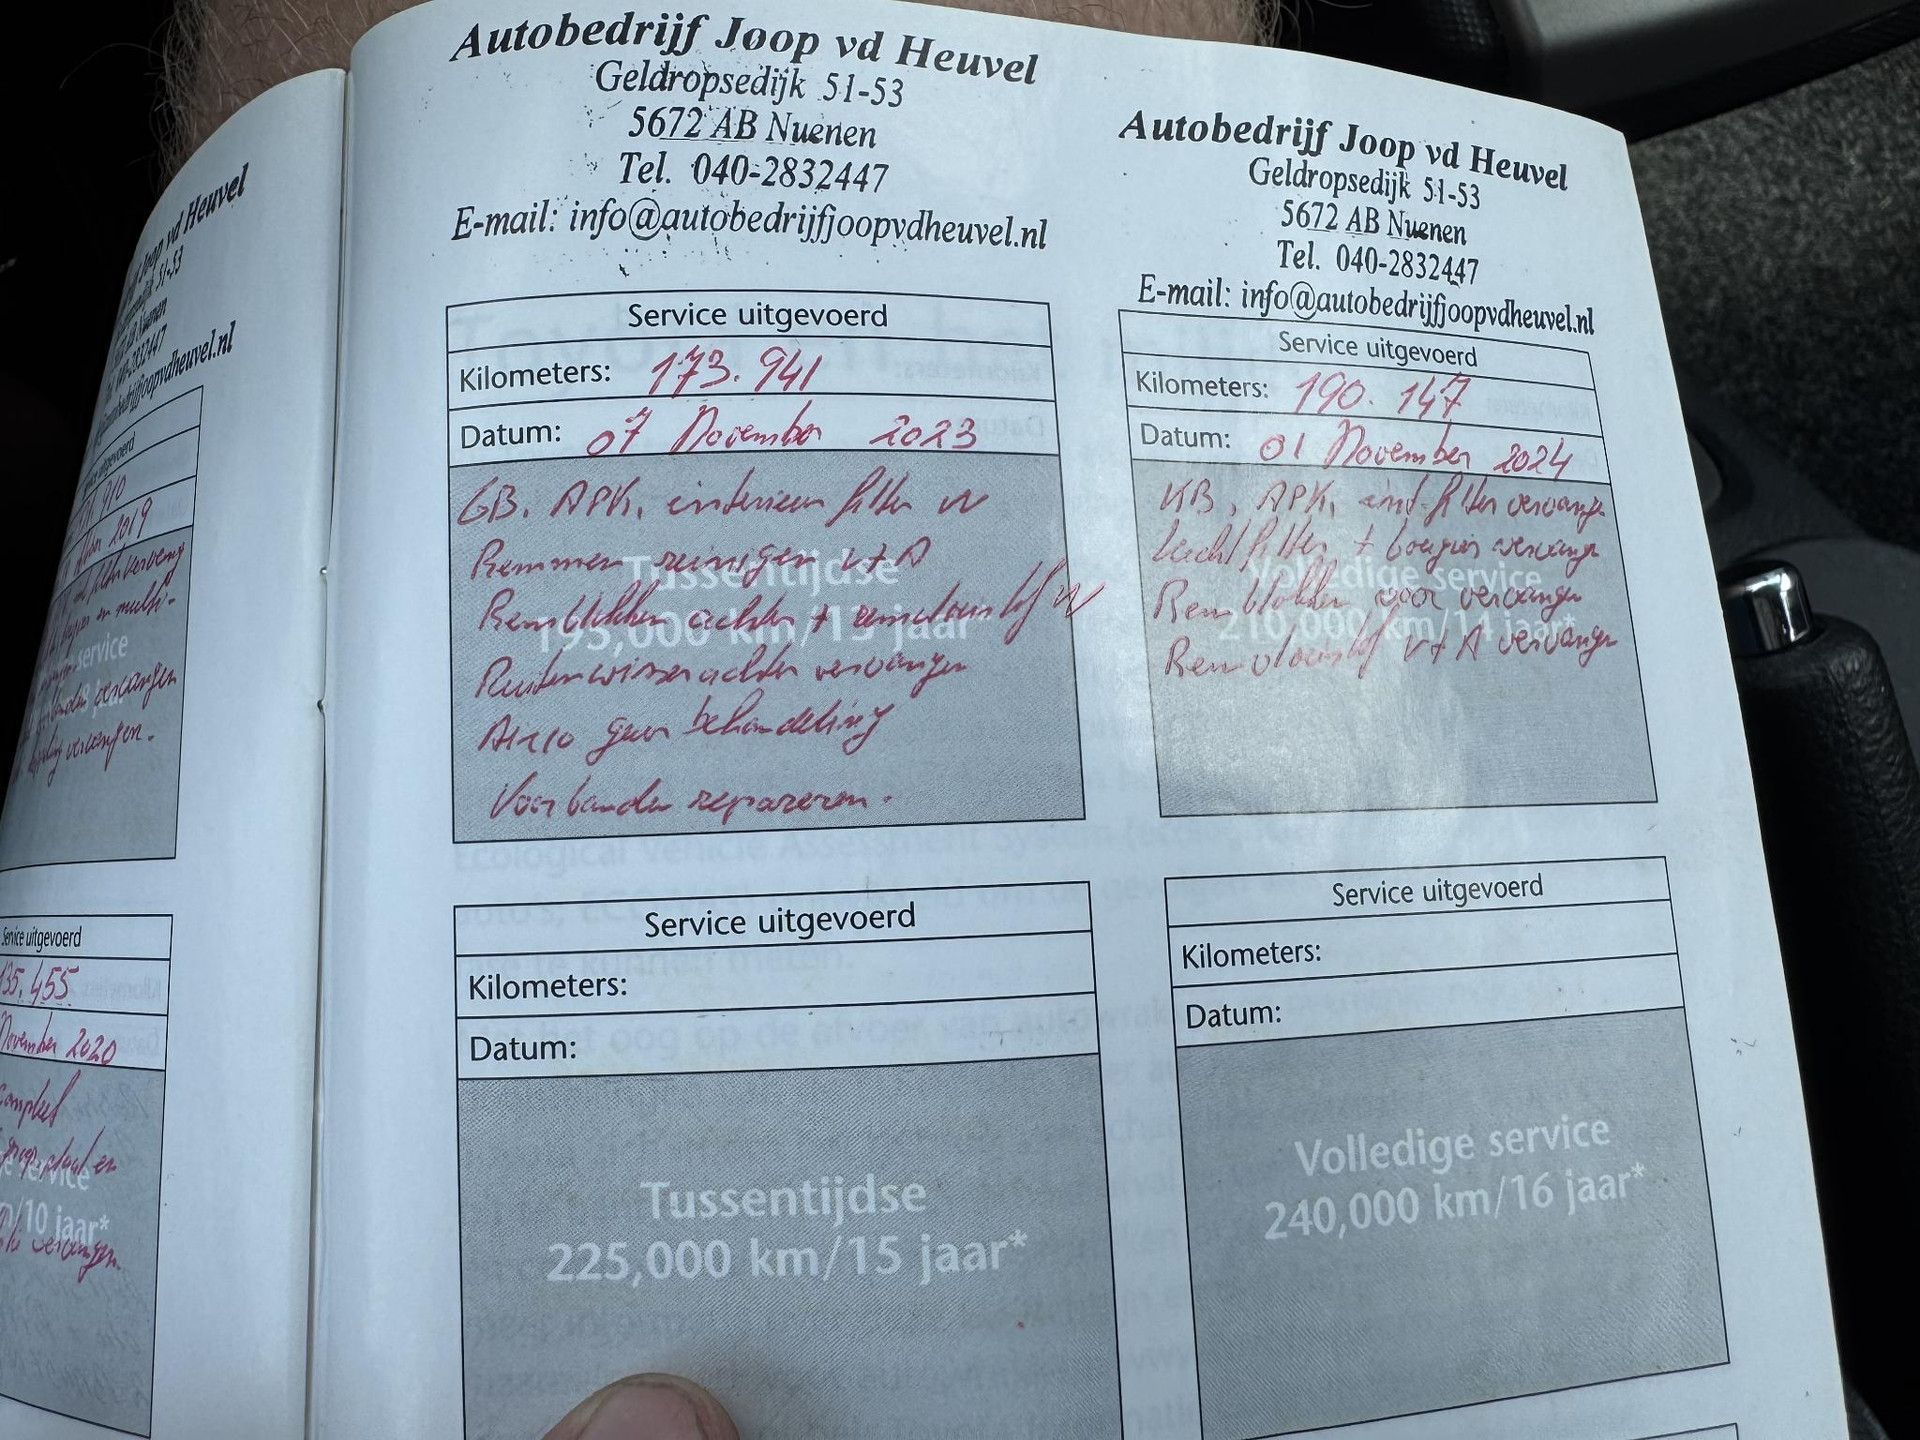 Joop vd Heuvel
51-53
Nuenen
vdheuvel.nl
2019
service
Service uitgevoerd
135.455
November 2020
compleet
/10 jaar*
Autobedrijf Joop vd Heuvel
Geldropsedijk 51-53
5672 AB Nuenen
Tel. 040-2832447
E-mail: info@autobedrijfjoopvdheuvel.nl
Service uitgevoerd
Kilometers: 173.941
Datum: 07 November 2023
GB, APK, interieur filter V
Remmen reinigen V+A
Tussentijdse
Remblokken achter + remvloeistof V
195,000 km/13 jaar*
Ruitenwisser achter vervangen
Airco geur behandeling
Voorbanden repareren.
Service uitgevoerd
Kilometers:
Datum:
Tussentijdse
225,000 km/15 jaar*
Autobedrijf Joop vd Heuvel
Geldropsedijk 51-53
5672 AB Nuenen
Tel. 040-2832447
E-mail: info@autobedrijfjoopvdheuvel.nl
Service uitgevoerd
Kilometers: 190.147
Datum: 01 November 2024
KB, APK, int filter vervangen
luchtfilter + bougies vervangen
Volledige service
Remblokken voor vervangen
210,000 km/14 jaar*
Remvloeistof V+A vervangen
Service uitgevoerd
Kilometers:
Datum:
Volledige service
240,000 km/16 jaar*